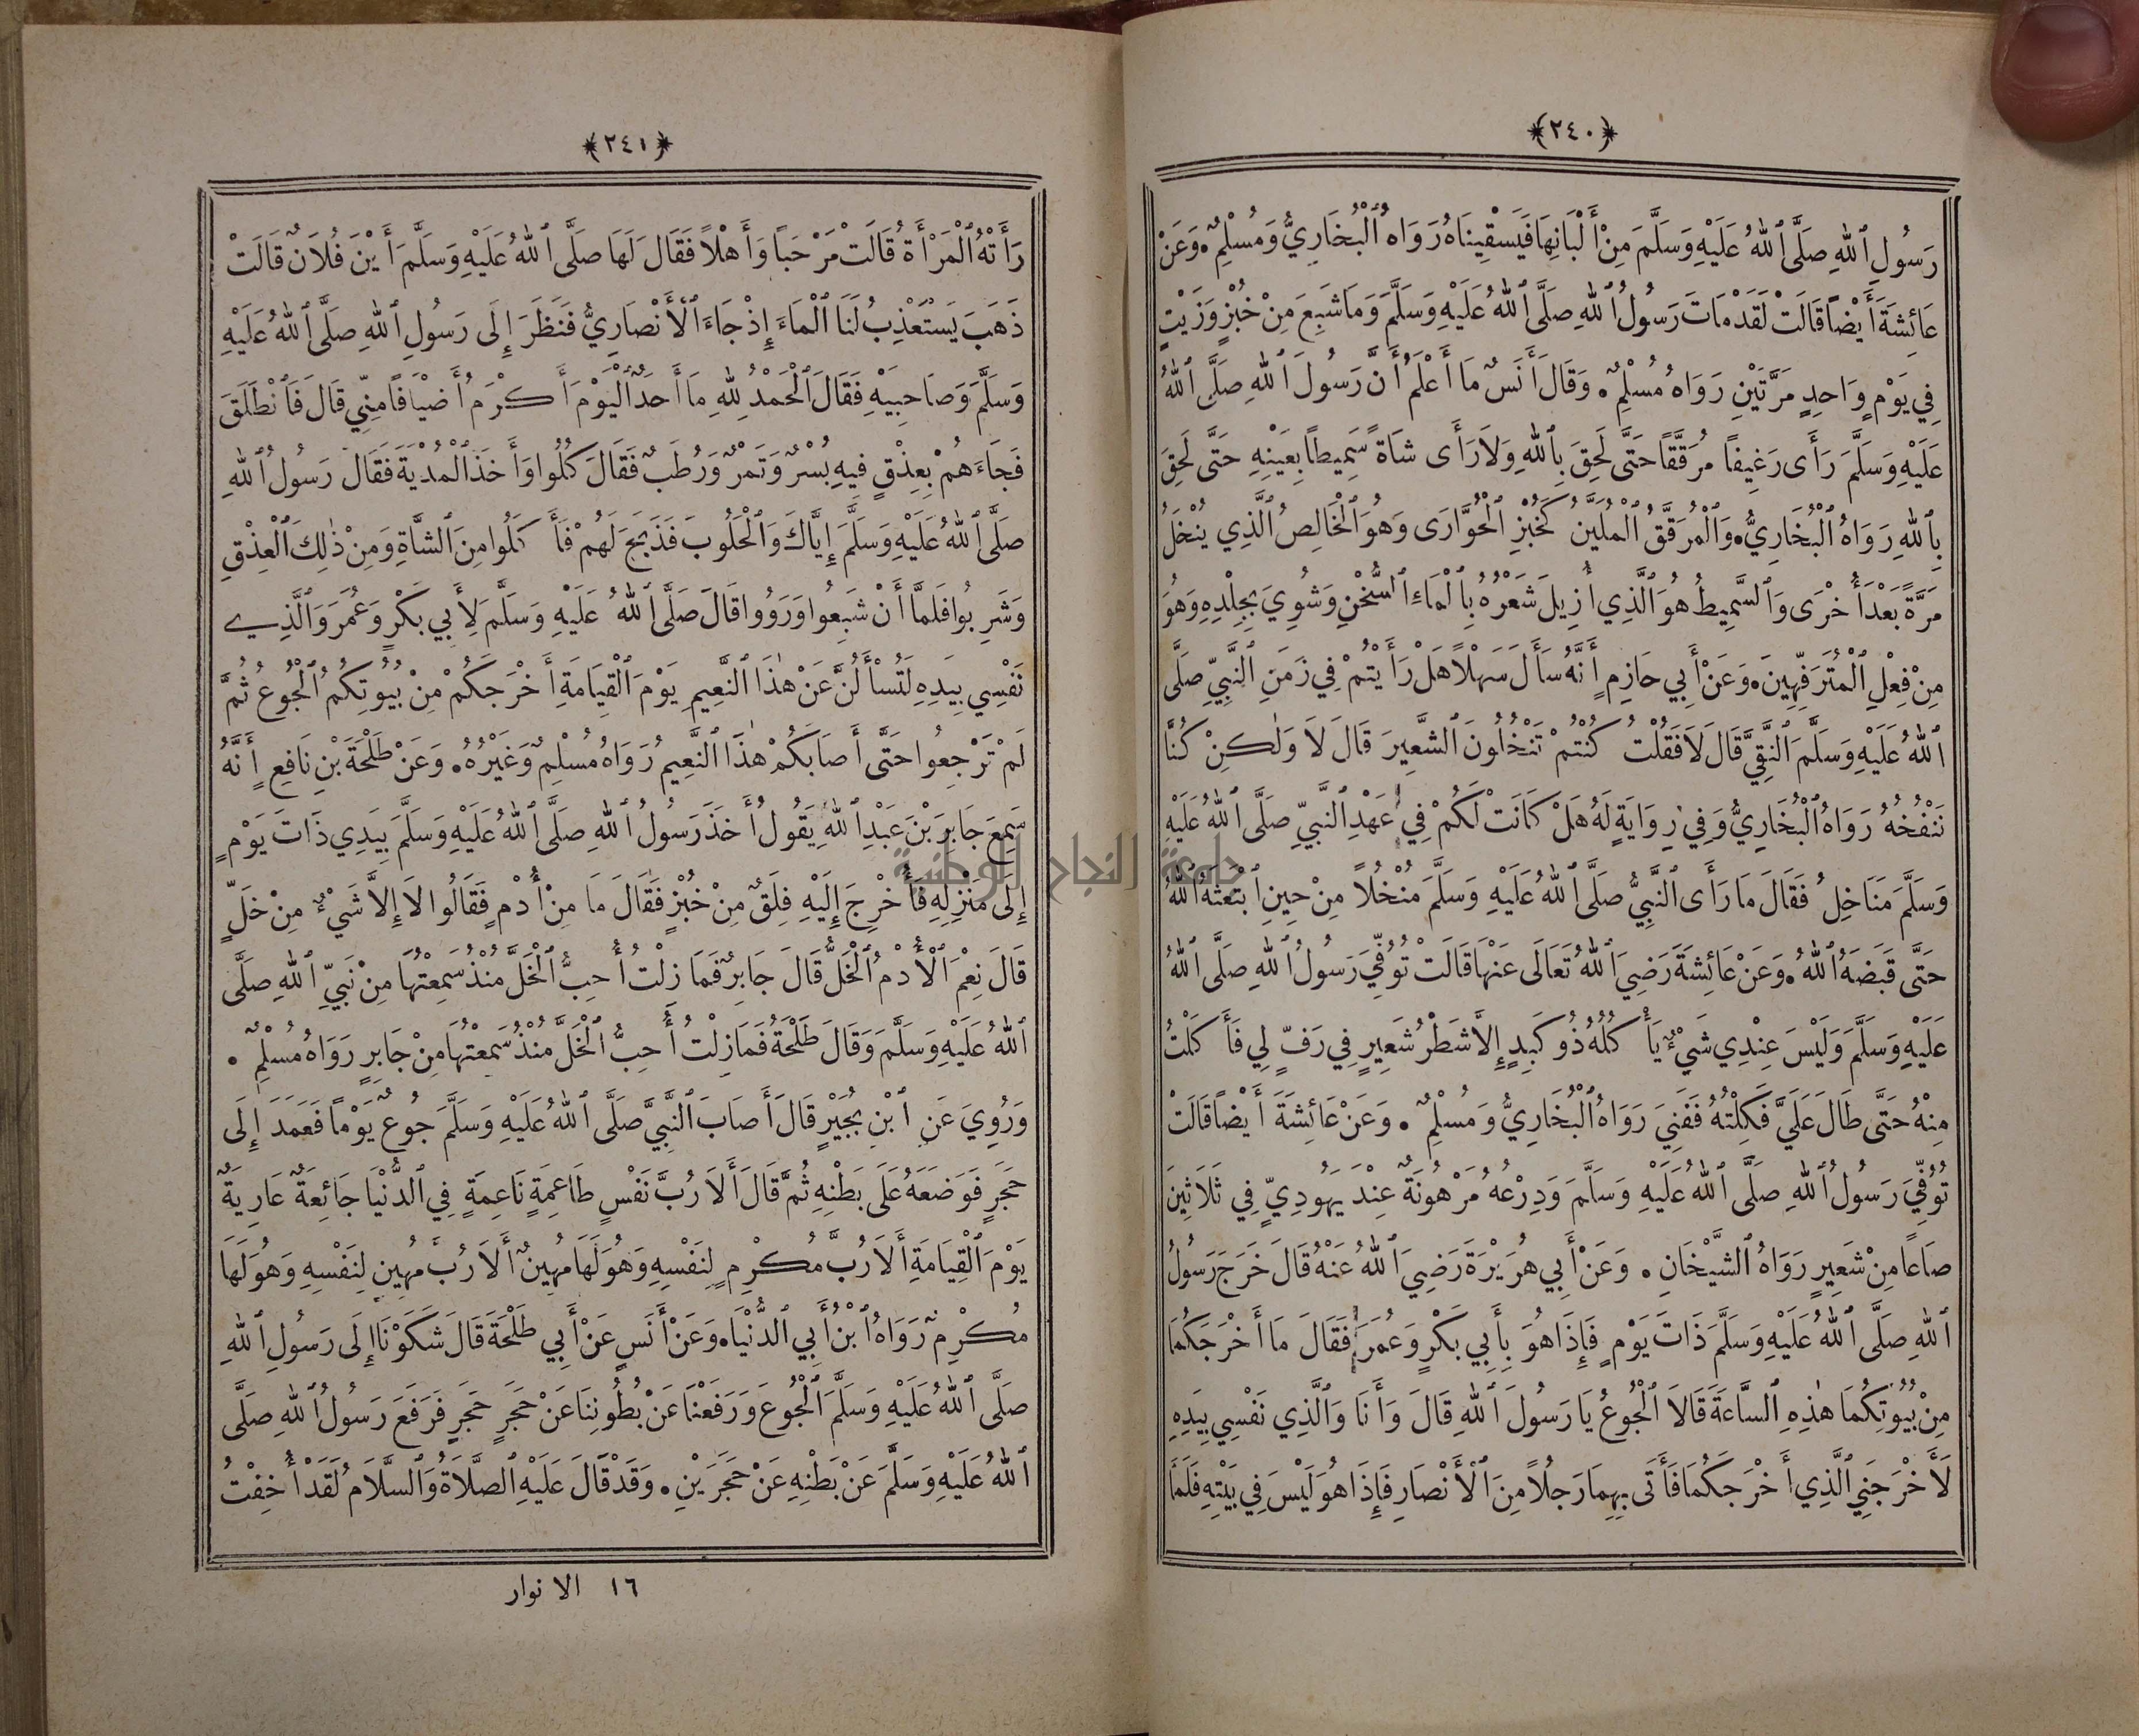 ﴿٢٤٠﴾
رَسُولِ ٱللهِ صَلَّى ٱللهُ عَلَيْهِ وَسَلَّمَ مِنْ أَلْبَانِهَا فَيَسْقِينَاهُ رَوَاهُ ٱلْبُخَارِيُّ وَمُسْلِمٌ. وَعَنْ
عَائِشَةَ أَيْضاً قَالَتْ لَقَدْ مَاتَ رَسُولُ ٱللهِ صَلَّى ٱللهُ عَلَيْهِ وَسَلَّمَ وَمَا شَبِعَ مِنْ خُبْزٍ وَزَيْتٍ
فِي يَوْمٍ وَاحِدٍ مَرَّتَيْنِ رَوَاهُ مُسْلِمٌ. وَقَالَ أَنَسٌ مَا أَعْلَمُ أَنَّ رَسُولَ ٱللهِ صَلَّى ٱللهُ
عَلَيْهِ وَسَلَّمَ رَأَى رَغِيفاً مُرَقَّقاً حَتَّى لَحِقَ بِٱللهِ وَلاَ رَأَى شَاةً سَمِيطاً بِعَيْنِهِ حَتَّى لَحِقَ
بِٱللهِ رَوَاهُ ٱلْبُخَارِيُّ. وَٱلْمُرَقَّقُ ٱلْمُلَيَّنُ كَخُبْزِ ٱلْحُوَّارَى وَهُوَ ٱلْخَالِصُ ٱلَّذِي يُنْخَلُ
مَرَّةً بَعْدَ أُخْرَى وَٱلسَّمِيطُ هُوَ ٱلَّذِي أُزِيلَ شَعْرُهُ بِٱلْمَاءِ ٱلسُّخْنِ وَشُوِيَ بِجِلْدِهِ وَهُوَ
مِنْ فِعْلِ ٱلْمُتَرَفِّهِينَ. وَعَنْ أَبِي حَازِمٍ أَنَّهُ سَأَلَ سَهْلاً هَلْ رَأَيْتُمْ فِي زَمَنِ ٱلنَّبِيِّ صَلَّى
ٱللهُ عَلَيْهِ وَسَلَّمَ ٱلنَّقِيَّ قَالَ لاَ فَقُلْتُ كُنْتُمْ تَنْخُلُونَ ٱلشَّعِيرَ قَالَ لاَ وَلٰكِنْ كُنَّا
نَنْفُخُهُ رَوَاهُ ٱلْبُخَارِيُّ وَفِي رِوَايَةٍ لَهُ هَلْ كَانَتْ لَكُمْ فِي عَهْدِ ٱلنَّبِيِّ صَلَّى ٱللهُ عَلَيْهِ
وَسَلَّمَ مَنَاخِلُ فَقَالَ مَا رَأَى ٱلنَّبِيُّ صَلَّى ٱللهُ عَلَيْهِ وَسَلَّمَ مُنْخُلاً مِنْ حِينِ ٱبْتَعَثَهُ ٱللهُ
حَتَّى قَبَضَهُ ٱللهُ. وَعَنْ عَائِشَةَ رَضِيَ ٱللهُ تَعَالَى عَنْهَا قَالَتْ تُوُفِّيَ رَسُولُ ٱللهِ صَلَّى ٱللهُ
عَلَيْهِ وَسَلَّمَ وَلَيْسَ عِنْدِي شَيْءٌ يَأْكُلُهُ ذُو كَبِدٍ إِلاَّ شَطْرُ شَعِيرٍ فِي رَفٍّ لِي فَأَكَلْتُ
مِنْهُ حَتَّى طَالَ عَلَيَّ فَكِلْتُهُ فَفَنِيَ رَوَاهُ ٱلْبُخَارِيُّ وَمُسْلِمٌ. وَعَنْ عَائِشَةَ أَيْضاً قَالَتْ
تُوُفِّيَ رَسُولُ ٱللهِ صَلَّى ٱللهُ عَلَيْهِ وَسَلَّمَ وَدِرْعُهُ مَرْهُونَةٌ عِنْدَ يَهُودِيٍّ فِي ثَلاَثِينَ
صَاعاً مِنْ شَعِيرٍ رَوَاهُ ٱلشَّيْخَانِ. وَعَنْ أَبِي هُرَيْرَةَ رَضِيَ ٱللهُ عَنْهُ قَالَ خَرَجَ رَسُولُ
ٱللهِ صَلَّى ٱللهُ عَلَيْهِ وَسَلَّمَ ذَاتَ يَوْمٍ فَإِذَا هُوَ بِأَبِي بَكْرٍ وَعُمَرَ فَقَالَ مَا أَخْرَجَكُمَا
مِنْ بُيُوتِكُمَا هٰذِهِ ٱلسَّاعَةَ قَالاَ ٱلْجُوعُ يَا رَسُولَ ٱللهِ قَالَ وَأَنَا وَٱلَّذِي نَفْسِي بِيَدِهِ
لَأَخْرَجَنِي ٱلَّذِي أَخْرَجَكُمَا فَأَتَى بِهِمَا رَجُلاً مِنَ ٱلْأَنْصَارِ فَإِذَا هُوَ لَيْسَ فِي بَيْتِهِ فَلَمَّا
﴿٢٤١﴾
رَأَتْهُ ٱلْمَرْأَةُ قَالَتْ مَرْحَباً وَأَهْلاً فَقَالَ لَهَا صَلَّى ٱللهُ عَلَيْهِ وَسَلَّمَ أَيْنَ فُلاَنٌ قَالَتْ
ذَهَبَ يَسْتَعْذِبُ لَنَا ٱلْمَاءَ إِذْ جَاءَ ٱلْأَنْصَارِيُّ فَنَظَرَ إِلَى رَسُولِ ٱللهِ صَلَّى ٱللهُ عَلَيْهِ
وَسَلَّمَ وَصَاحِبَيْهِ فَقَالَ ٱلْحَمْدُ لِلهِ مَا أَحَدٌ ٱلْيَوْمَ أَكْرَمَ أَضْيَافاً مِنِّي قَالَ فَٱنْطَلَقَ
فَجَاءَهُمْ بِعِذْقٍ فِيهِ بُسْرٌ وَتَمْرٌ وَرُطَبٌ فَقَالَ كُلُوا وَأَخَذَ ٱلْمُدْيَةَ فَقَالَ رَسُولُ ٱللهِ
صَلَّى ٱللهُ عَلَيْهِ وَسَلَّمَ إِيَّاكَ وَٱلْحَلُوبَ فَذَبَحَ لَهُمْ فَأَكَلُوا مِنَ ٱلشَّاةِ وَمِنْ ذٰلِكَ ٱلْعِذْقِ
وَشَرِبُوا فَلَمَّا أَنْ شَبِعُوا وَرَوُوا قَالَ صَلَّى ٱللهُ عَلَيْهِ وَسَلَّمَ لِأَبِي بَكْرٍ وَعُمَرَ وَٱلَّذِي
نَفْسِي بِيَدِهِ لَتُسْأَلُنَّ عَنْ هٰذَا ٱلنَّعِيمِ يَوْمَ ٱلْقِيَامَةِ أَخْرَجَكُمْ مِنْ بُيُوتِكُمُ ٱلْجُوعُ ثُمَّ
لَمْ تَرْجِعُوا حَتَّى أَصَابَكُمْ هٰذَا ٱلنَّعِيمُ رَوَاهُ مُسْلِمٌ وَغَيْرُهُ. وَعَنْ طَلْحَةَ بْنِ نَافِعٍ أَنَّهُ
سَمِعَ جَابِرَ بْنَ عَبْدِ ٱللهِ يَقُولُ أَخَذَ رَسُولُ ٱللهِ صَلَّى ٱللهُ عَلَيْهِ وَسَلَّمَ بِيَدِي ذَاتَ يَوْمٍ
إِلَى مَنْزِلِهِ فَأُخْرِجَ إِلَيْهِ فِلَقٌ مِنْ خُبْزٍ فَقَالَ مَا مِنْ أُدْمٍ فَقَالُوا لاَ إِلاَّ شَيْءٌ مِنْ خَلٍّ
قَالَ نِعْمَ ٱلْأُدْمُ ٱلْخَلُّ قَالَ جَابِرٌ فَمَا زِلْتُ أُحِبُّ ٱلْخَلَّ مُنْذُ سَمِعْتُهَا مِنْ نَبِيِّ ٱللهِ صَلَّى
ٱللهُ عَلَيْهِ وَسَلَّمَ وَقَالَ طَلْحَةُ فَمَا زِلْتُ أُحِبُّ ٱلْخَلَّ مُنْذُ سَمِعْتُهَا مِنْ جَابِرٍ رَوَاهُ مُسْلِمٌ.
وَرُوِيَ عَنِ ٱبْنِ بُجَيْرٍ قَالَ أَصَابَ ٱلنَّبِيَّ صَلَّى ٱللهُ عَلَيْهِ وَسَلَّمَ جُوعٌ يَوْماً فَعَمَدَ إِلَى
حَجَرٍ فَوَضَعَهُ عَلَى بَطْنِهِ ثُمَّ قَالَ أَلاَ رُبَّ نَفْسٍ طَاعِمَةٍ نَاعِمَةٍ فِي ٱلدُّنْيَا جَائِعَةٌ عَارِيَةٌ
يَوْمَ ٱلْقِيَامَةِ أَلاَ رُبَّ مُكْرِمٍ لِنَفْسِهِ وَهُوَ لَهَا مُهِينٌ أَلاَ رُبَّ مُهِينٍ لِنَفْسِهِ وَهُوَ لَهَا
مُكْرِمٌ رَوَاهُ ٱبْنُ أَبِي ٱلدُّنْيَا. وَعَنْ أَنَسٍ عَنْ أَبِي طَلْحَةَ قَالَ شَكَوْنَا إِلَى رَسُولِ ٱللهِ
صَلَّى ٱللهُ عَلَيْهِ وَسَلَّمَ ٱلْجُوعَ وَرَفَعْنَا عَنْ بُطُونِنَا عَنْ حَجَرٍ حَجَرٍ فَرَفَعَ رَسُولُ ٱللهِ صَلَّى
ٱللهُ عَلَيْهِ وَسَلَّمَ عَنْ بَطْنِهِ عَنْ حَجَرَيْنِ. وَقَدْ قَالَ عَلَيْهِ ٱلصَّلاَةُ وَٱلسَّلاَمُ لَقَدْ أُخِفْتُ
١٦ الانوار
جامعة النجاح الوطنية